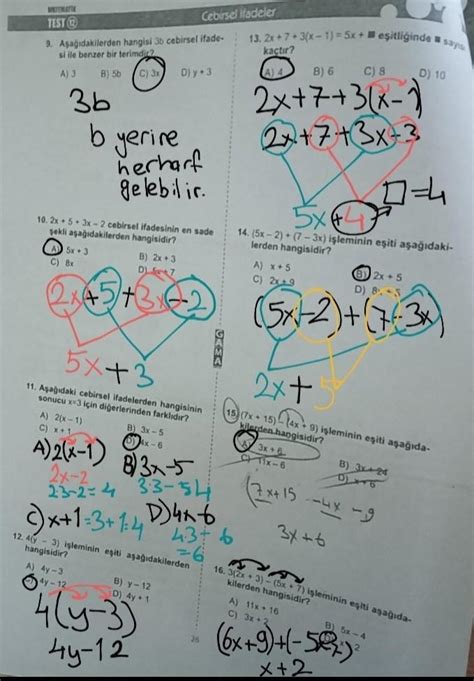 MATEMATİK
TEST 12
Cebirsel İfadeler
9. Aşağıdakilerden hangisi 3b cebirsel ifade-
si ile benzer bir terimdir?
A) 3 B) 5b C) 3x D) y + 3
3b
b yerine
herharf
gelebilir.
10. 2x + 5 + 3x – 2 cebirsel ifadesinin en sade
şekli aşağıdakilerden hangisidir?
A) 5x + 3 B) 2x + 3
C) 8x D) 5x + 7
2x+5+3x-2
5x+3
11. Aşağıdaki cebirsel ifadelerden hangisinin
sonucu x=3 için diğerlerinden farklıdır?
A) 2(x – 1) B) 3x – 5
C) x + 1 D) 4x – 6
A) 2(x-1) B) 3x-5
2x-2
2.3-2=4 3.3-5 4
C) x+1=3+1=4 D) 4x-6
4.3-6
=6
12. 4(y – 3) işleminin eşiti aşağıdakilerden
hangisidir?
A) 4y – 3 B) y – 12
4y – 12 D) 4y + 1
4(y-3)
4y-12
13. 2x + 7 + 3(x – 1) = 5x + ■ eşitliğinde ■ sayısı
kaçtır?
A) 4 B) 6 C) 8 D) 10
2x+7+3(x-1)
2x+7+3x-3
5x+4 □=4
14. (5x – 2) + (7 – 3x) işleminin eşiti aşağıdaki-
lerden hangisidir?
A) x + 5 B) 2x + 5
C) 2x + 9 D)
(5x-2)+(7-3x)
2x+5
GAMA
15. (7x + 15) – (4x + 9) işleminin eşiti aşağıda-
kilerden hangisidir?
A) 3x + 6 B) 3x + 24
C) 11x – 6 D) x + 6
(7x+15 -4x -9
3x+6
16. 3(2x + 3) – (5x + 7) işleminin eşiti aşağıda-
kilerden hangisidir?
A) 11x + 16 B) 5x – 4
C) 3x + 2
(6x+9)+(-5x-7)
x+2